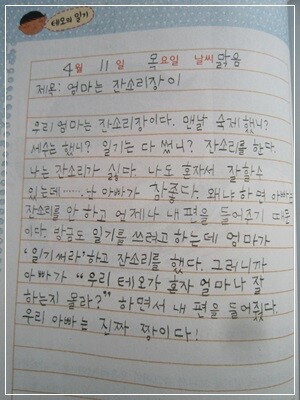 태오의 일기
4월 11일 목요일 날씨 맑음
제목: 엄마는 잔소리장이
우리 엄마는 잔소리장이다. 맨날 숙제 했니?
세수는 했니? 일기는 다 썼니? 잔소리를 한다.
나는 잔소리가 싫다. 나도 혼자서 잘할수
있는데…… 난 아빠가 참좋다. 왜냐하면 아빠는
잔소리를 안 하고 언제나 내 편을 들어주기 때문
이다. 방금도 일기를 쓰려고하는데 엄마가
'일기써라'하고 잔소리를 했다. 그러니까
아빠가 "우리 테오가 혼자 얼마나 잘
하는지 몰라?" 하면서 내 편을 들어줬다.
우리 아빠는 진짜 짱이다!